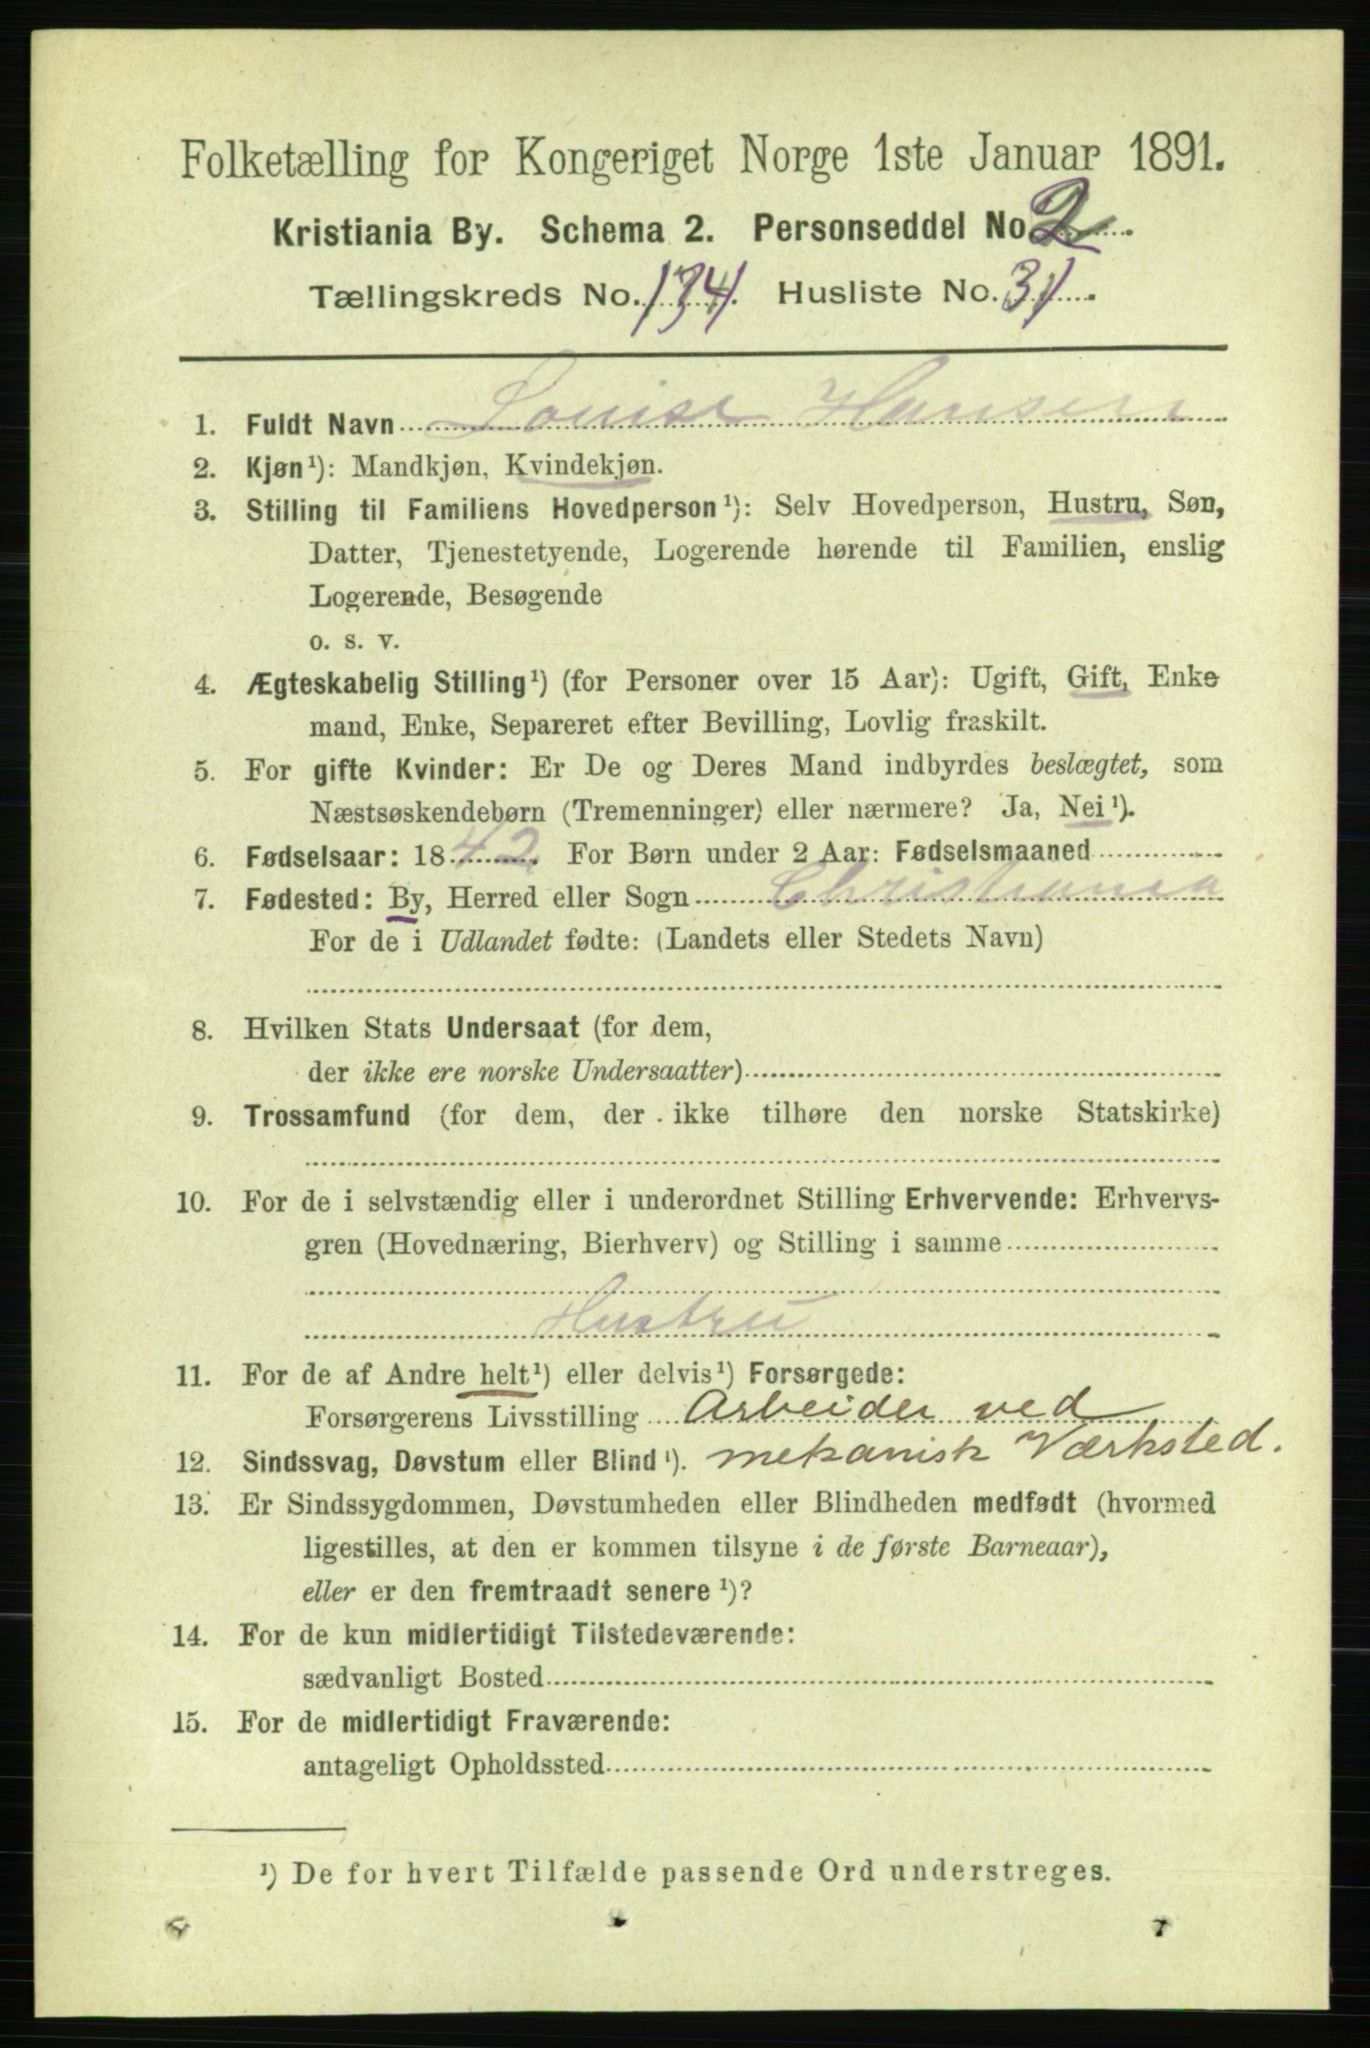 Folketælling for Kongeriget Norge 1ste Januar 1891.
Kristiania By. Schema 2. Personseddel No. 2
Tællingskreds No. 134. Husliste No. 31
1. Fuldt Navn Louise Hansen
2. Kjøn¹): Mandkjøn, Kvindekjøn.
3. Stilling til Familiens Hovedperson¹): Selv Hovedperson, Hustru, Søn,
Datter, Tjenestetyende, Logerende hørende til Familien, enslig
Logerende, Besøgende
o. s. v.
4. Ægteskabelig Stilling¹) (for Personer over 15 Aar): Ugift, Gift, Enke
mand, Enke, Separeret efter Bevilling, Lovlig fraskilt.
5. For gifte Kvinder: Er De og Deres Mand indbyrdes beslægtet, som
Næstsøskendebørn (Tremenninger) eller nærmere? Ja, Nei¹).
6. Fødselsaar: 1842. For Børn under 2 Aar: Fødselsmaaned
7. Fødested: By, Herred eller Sogn Christiania
For de i Udlandet fødte: (Landets eller Stedets Navn)
8. Hvilken Stats Undersaat (for dem,
der ikke ere norske Undersaatter)
9. Trossamfund (for dem, der ikke tilhøre den norske Statskirke)
10. For de i selvstændig eller i underordnet Stilling Erhvervende: Erhvervs-
gren (Hovednæring, Bierhverv) og Stilling i samme
Hustru
11. For de af Andre helt¹) eller delvis¹) Forsørgede:
Forsørgerens Livsstilling Arbeider ved
12. Sindssvag, Døvstum eller Blind¹). mekanisk Værksted.
13. Er Sindssygdommen, Døvstumheden eller Blindheden medfødt (hvormed
ligestilles, at den er kommen tilsyne i de første Barneaar),
eller er den fremtraadt senere¹)?
14. For de kun midlertidigt Tilstedeværende:
sædvanligt Bosted
15. For de midlertidigt Fraværende:
antageligt Opholdssted
¹) De for hvert Tilfælde passende Ord understreges.